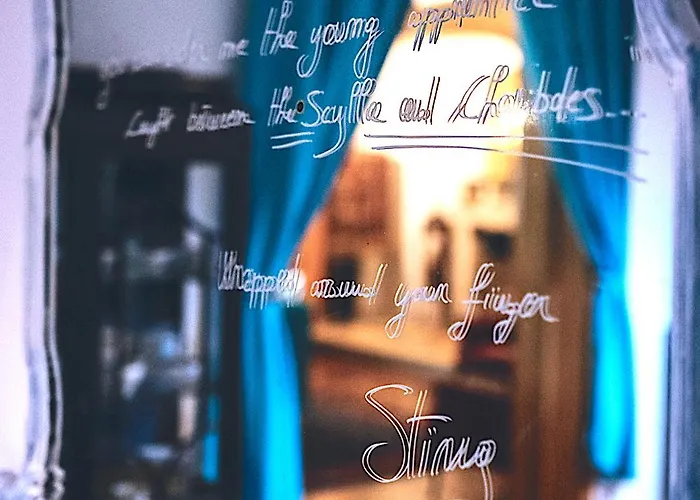 me the young apprentice
Caught between the Scylla and Charibdes...
Wrapped around your finger
Sting